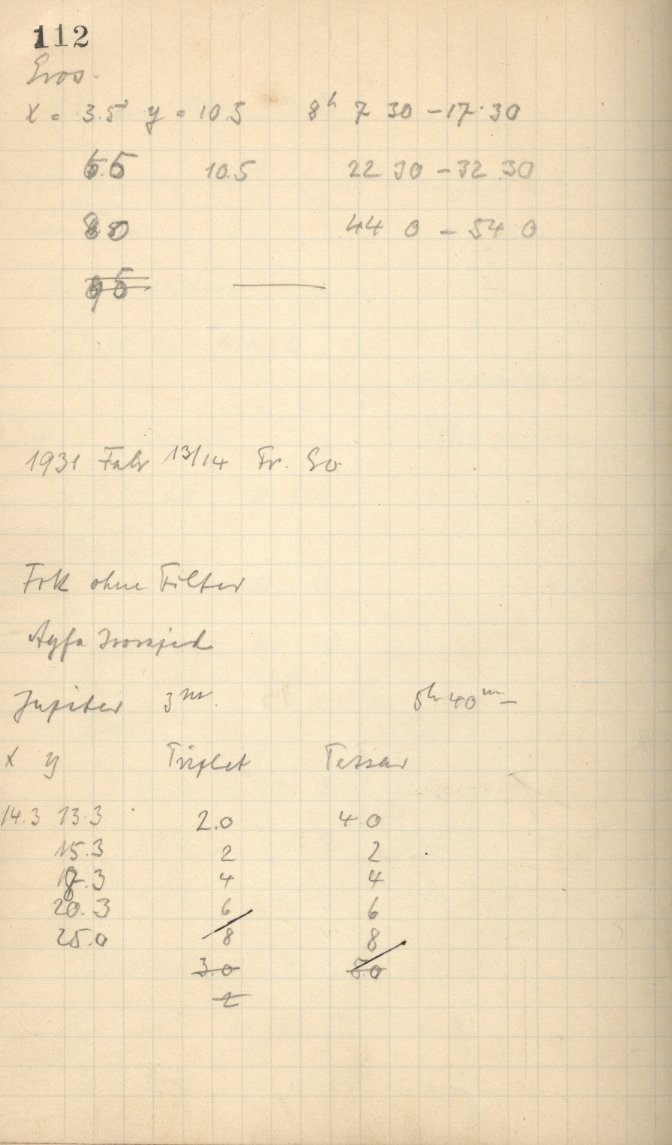 112
Eros.
x = 3.5 y = 10.5 8h 7 30 – 17 30
6.5 10.5 22 30 – 32 30
8.0 44 0 – 54 0
9.5
1931 Febr 13/14 Fr. So
Fok ohne Filter
Agfa Isorapid
Jupiter 3m. 5h 40m –
x y Triplet Tessar
14.3 13.3 2.0 4.0
15.3 2 2
17.3 4 4
20.3 6 6
25.0 8 8
3.0 5.0
2